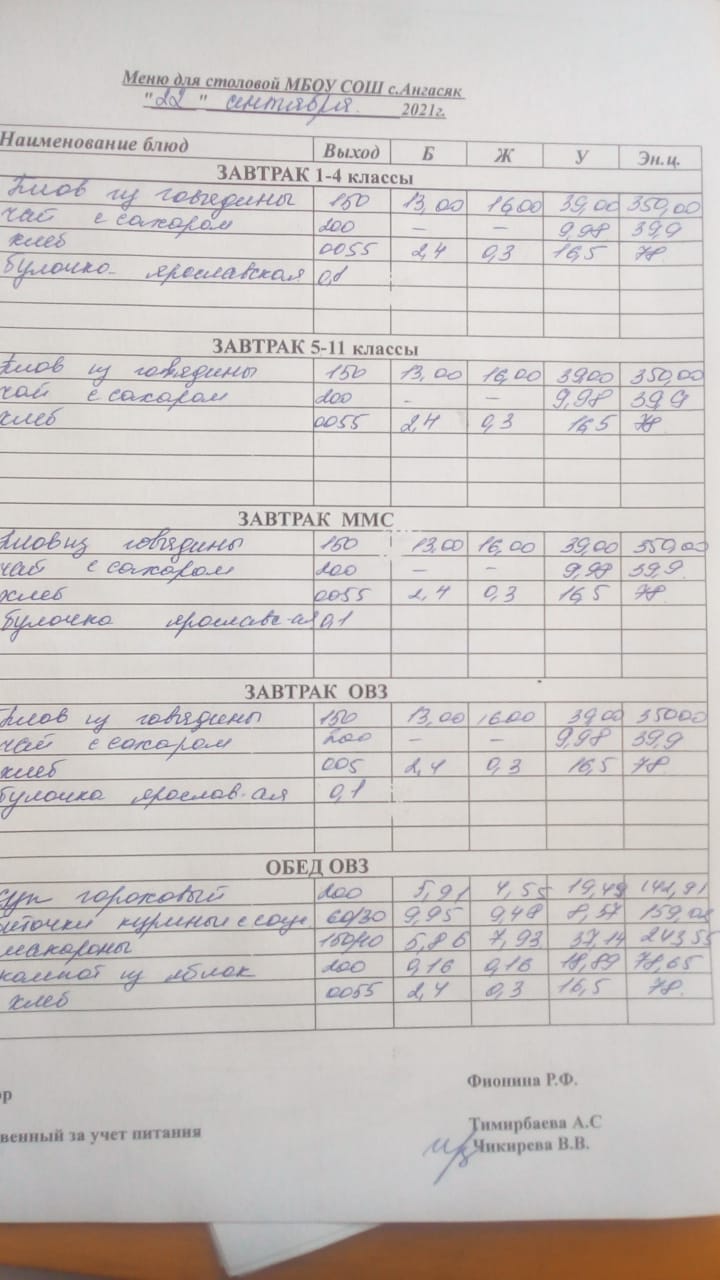 Меню для столовой МБОУ СОШ с.Ангасяк
"22" сентября 2021г.
Наименование блюд Выход Б Ж У Эн.ц.
ЗАВТРАК 1-4 классы
Плов из говядины 150 13,00 16,00 39,00 350,00
чай с сахаром 200 – – 9,98 39,9
хлеб 0055 2,4 0,3 16,5 78
булочка ярославская 0,1
ЗАВТРАК 5-11 классы
Плов из говядины 150 13,00 16,00 39,00 350,00
чай с сахаром 200 – – 9,98 39,9
хлеб 0055 2,4 0,3 16,5 78
ЗАВТРАК ММС
Плов из говядины 150 13,00 16,00 39,00 350,00
чай с сахаром 200 – – 9,98 39,9
хлеб 0055 2,4 0,3 16,5 78
булочка ярославс-ая 0,1
ЗАВТРАК ОВЗ
Плов из говядины 150 13,00 16,00 39,00 350,00
чай с сахаром 200 – – 9,98 39,9
хлеб 005 2,4 0,3 16,5 78
булочка ярослав-ая 0,1
ОБЕД ОВЗ
суп гороховый 200 5,91 4,55 19,49 142,91
куриные с соус 60/30 9,95 9,48 8,57 159,08
макароны 150/10 5,86 7,93 37,14 243,55
компот из яблок 200 0,16 0,16 18,89 78,65
хлеб 0055 2,4 0,3 16,5 78
ор Фионина Р.Ф.
венный за учет питания Тимирбаева А.С
Чикирева В.В.